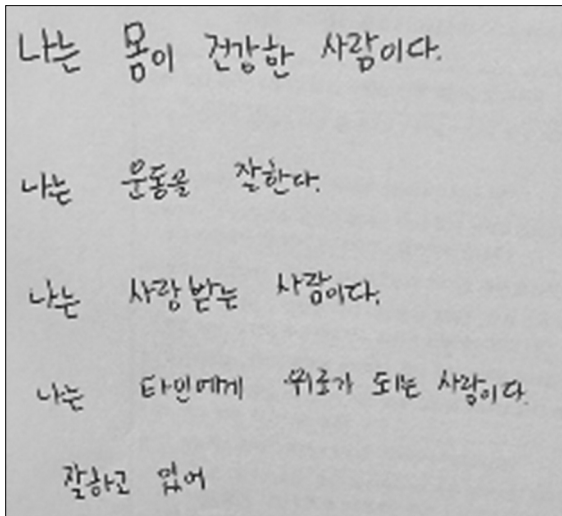 나는 몸이 건강한 사람이다.
나는 운동을 잘한다.
나는 사랑받는 사람이다.
나는 타인에게 위로가 되는 사람이다.
잘하고 있어